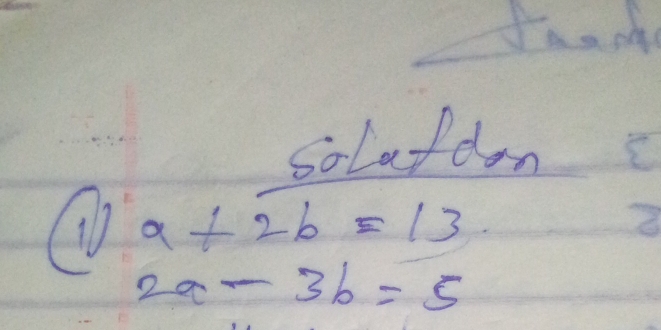 Solution
(1) a + 2b = 13.
2a - 3b = 5